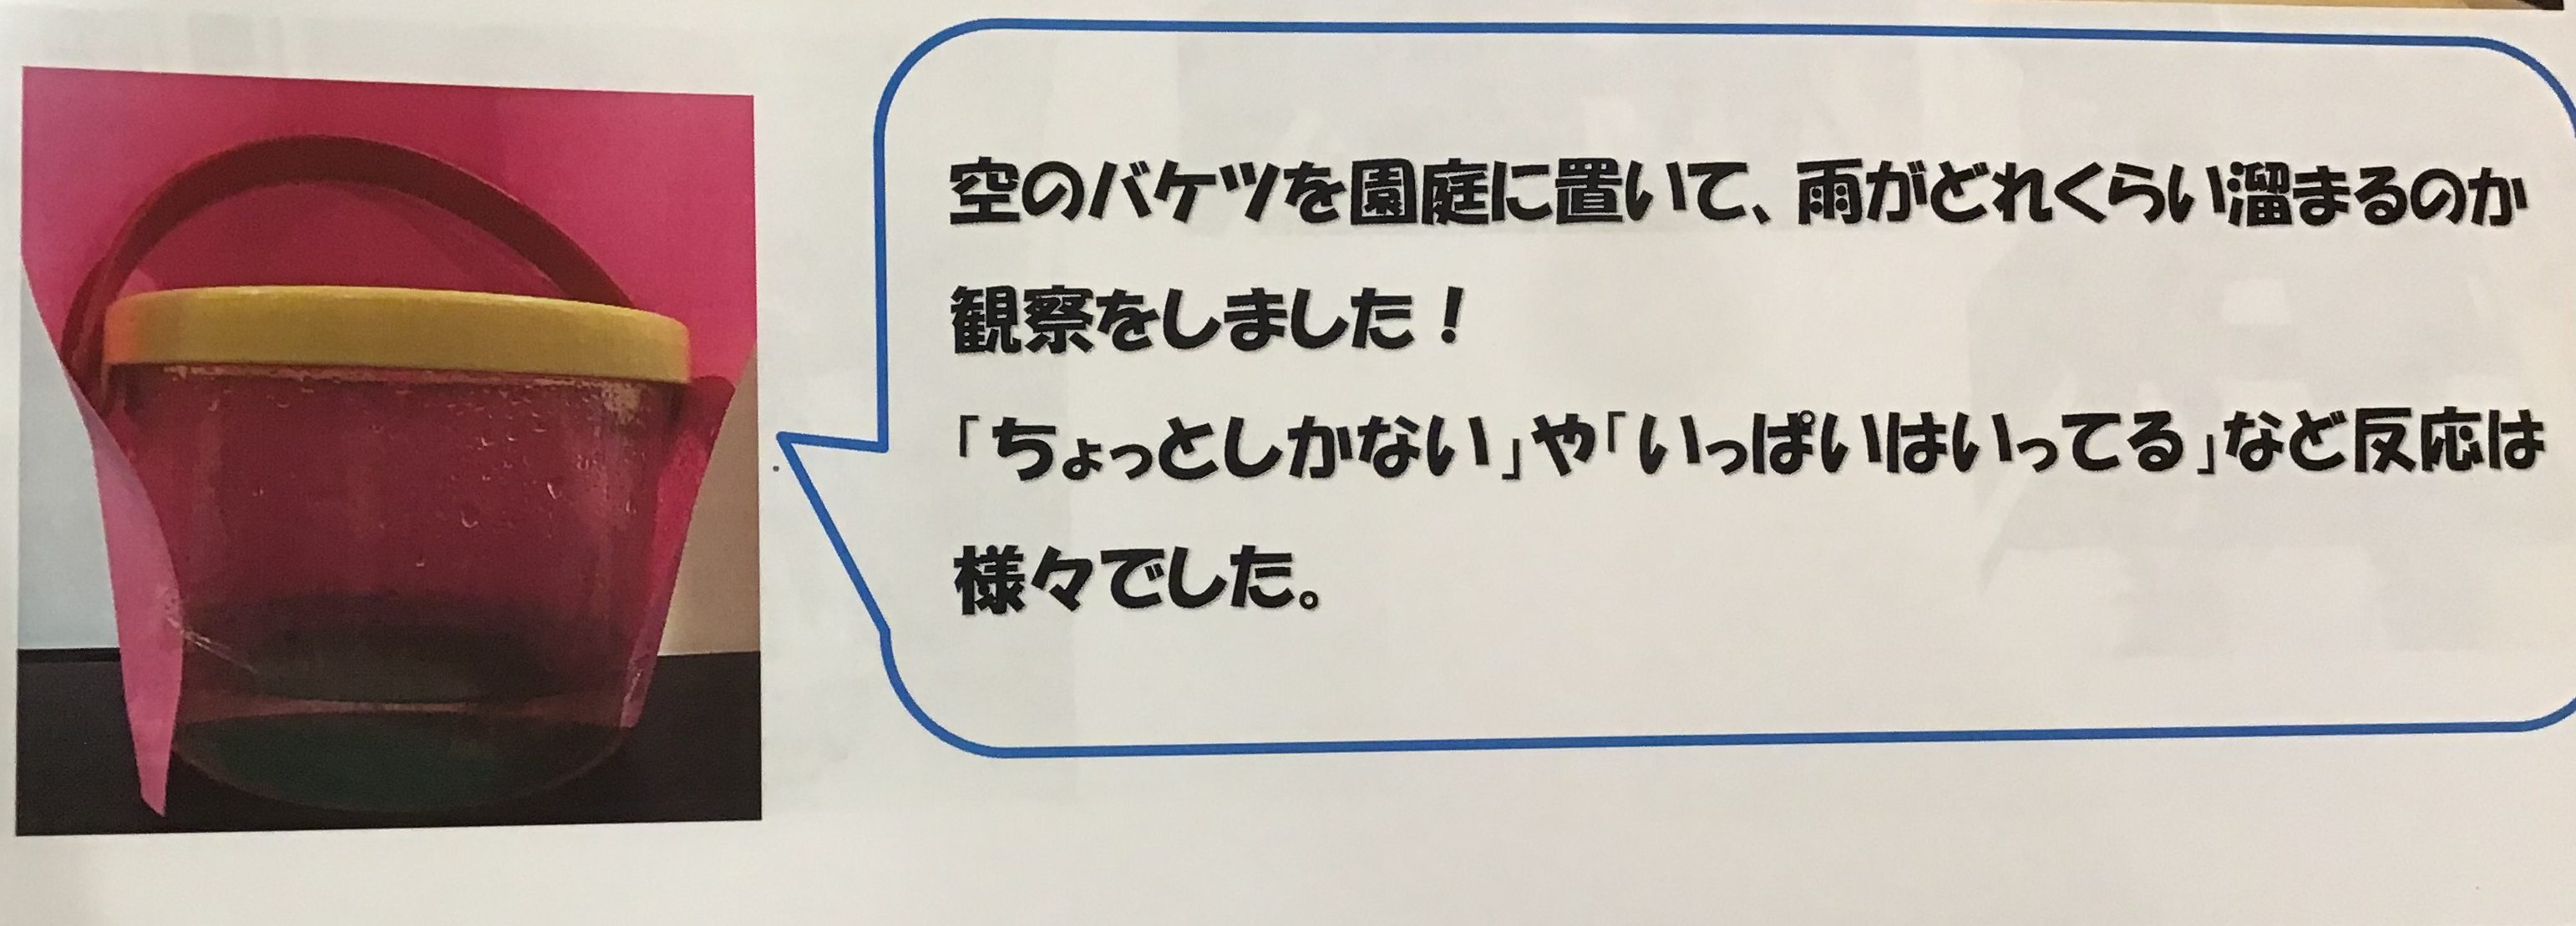 空のバケツを園庭に置いて、雨がどれくらい溜まるのか
観察をしました！
「ちょっとしかない」や「いっぱいはいってる」など反応は
様々でした。